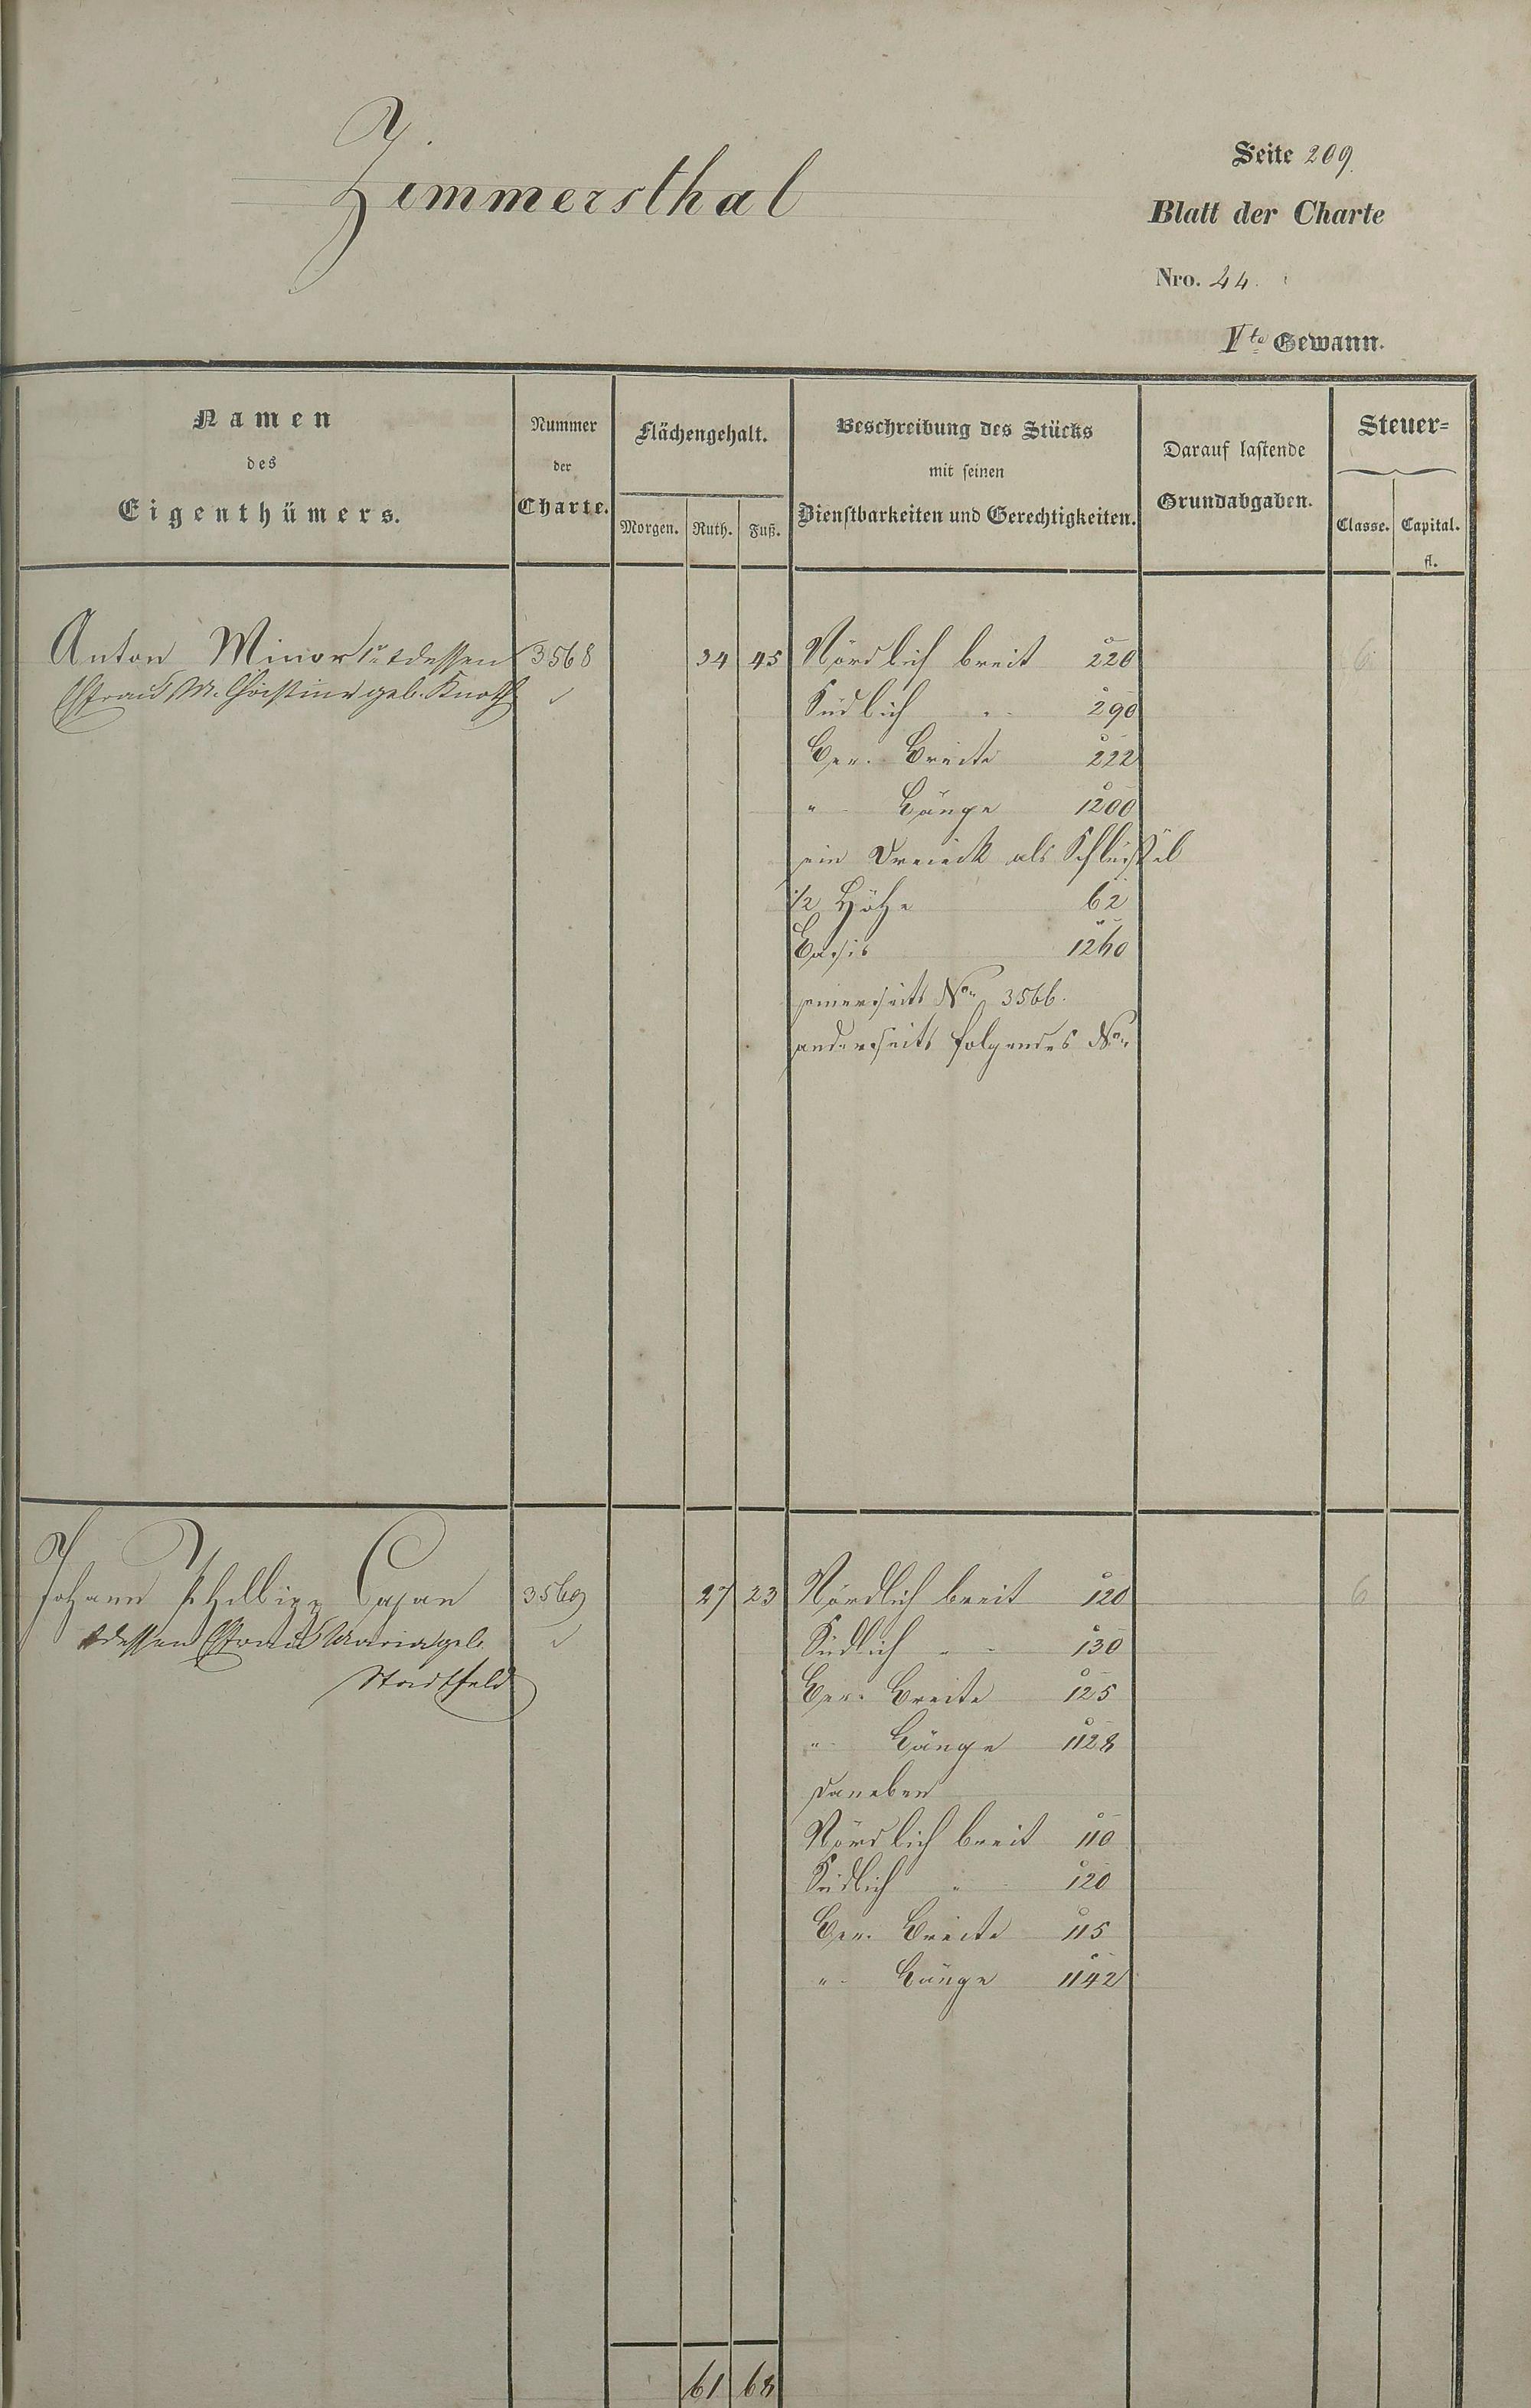 Zimmersthal
Seite 209.
Blatt der Charte
Nro. 44.
Gewann.
Namen
des
Eigenthümers.
Nummer
der
Charte.
Flächengehalt.
Morgen. Ruth. Fuß.
Beschreibung des Stücks
mit seinen
Dienstbarkeiten und Gerechtigkeiten.
Darauf lastende
Grundabgaben.
Steuer=
Classe. Capital.
fl.
Anton Minor 1r & dessen 3568 34 45 Nördlich breit 220 6
Ehfrau M. Christine geb. Knoth
Südlich " 290
Ber. Breite 222
" Länge 1200
ein Dreieck als Schlüssel
1/2 Höhe 62
Basis 1260
einerseits Nro 3566.
anderseits folgendes Nro
Johann Philipp 3569 27 23 Nördlich breit 120 6
& dessen Ehfrau Maria geb.
Stadtfeld
Südlich " 130
Ber. Breite 125
" Länge 1128
Daneben
Nördlich breit 110
Südlich " 120
Ber. Breite 115
" Länge 1142
61 68